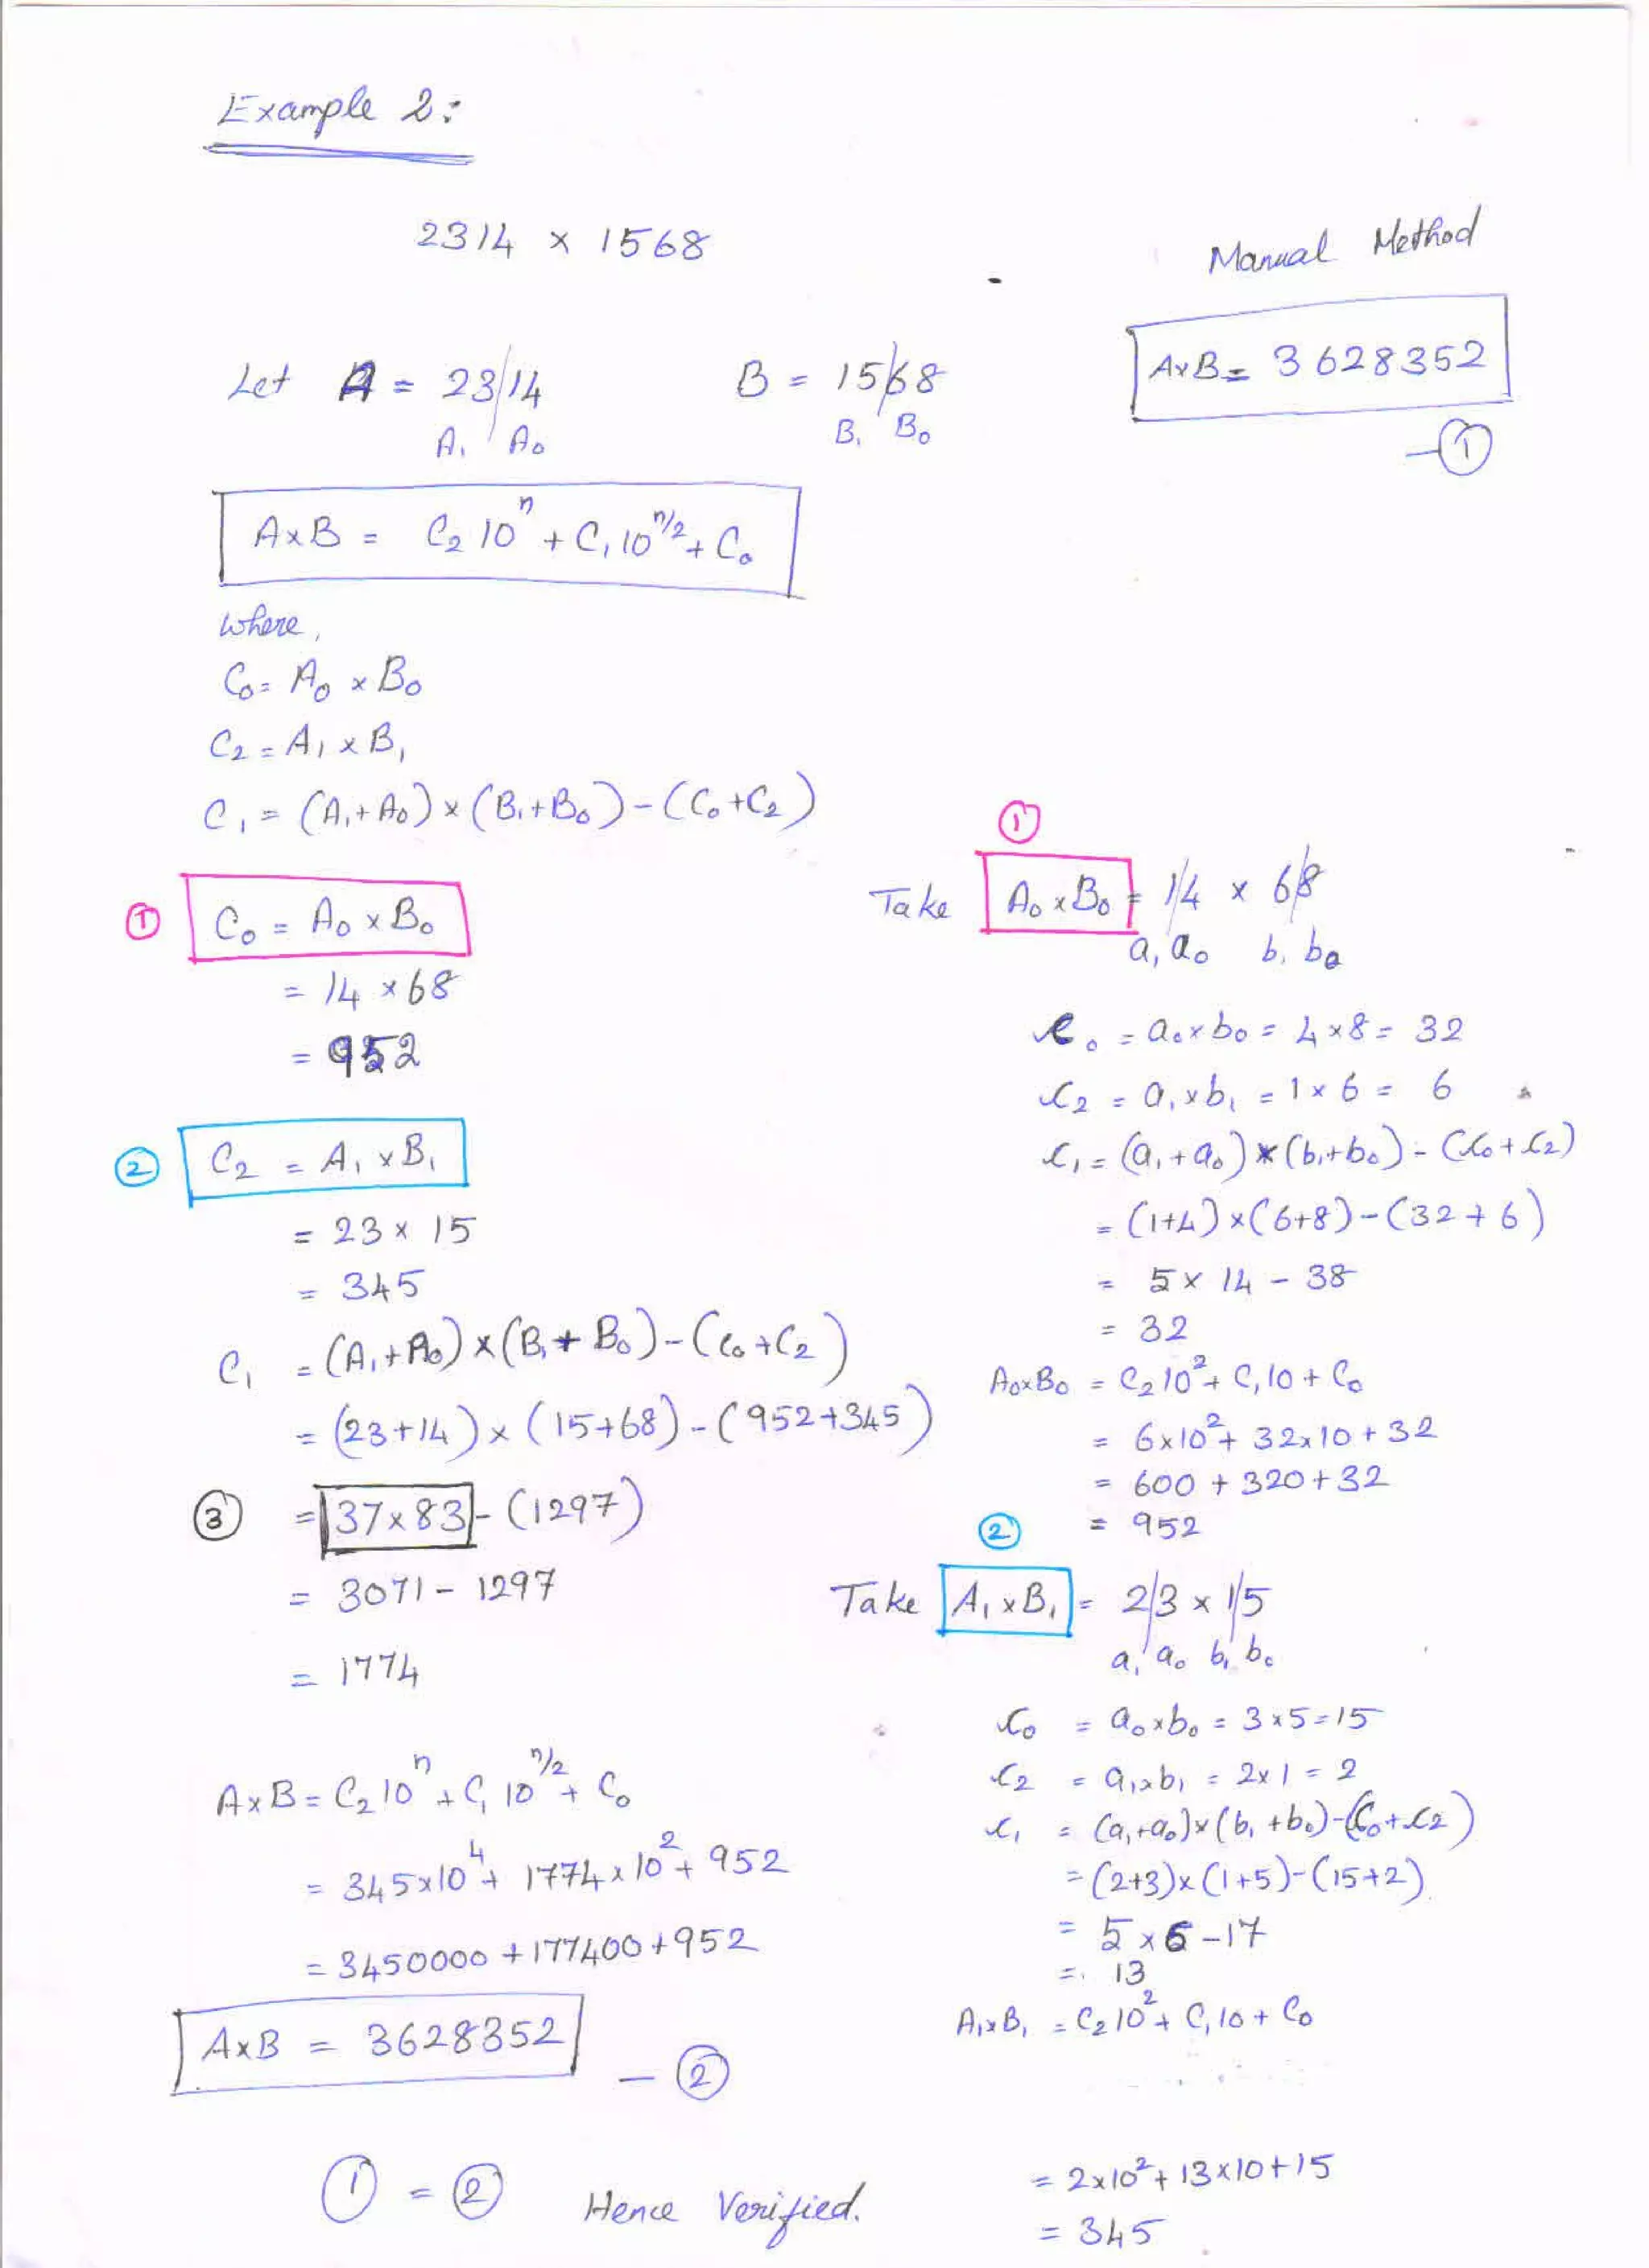 Example 2:
2314 × 1568
Manual Method
A×B = 3628352
— ①
Let A = 23/14   B = 15/68
A₁ / A₀   B₁ B₀
A×B = C₂ 10ⁿ + C₁ 10^(n/2) + C₀
where,
C₀ = A₀ × B₀
C₂ = A₁ × B₁
C₁ = (A₁ + A₀) × (B₁ + B₀) - (C₀ + C₂)
① C₀ = A₀ × B₀
= 14 × 68
= 952
② C₂ = A₁ × B₁
= 23 × 15
= 345
C₁ = (A₁ + A₀) × (B₁ + B₀) - (C₀ + C₂)
= (23 + 14) × (15 + 68) - (952 + 345)
③ = 37 × 83 - (1297)
= 3071 - 1297
= 1774
A×B = C₂ 10ⁿ + C₁ 10^(n/2) + C₀
= 345×10⁴ + 1774 × 10² + 952
= 3450000 + 177400 + 952
A×B = 3628352
— ②
① = ② Hence Verified.
①
Take A₀ × B₀ = 1/4 × 6/8
a₁ a₀ b₁ b₀
c₀ = a₀ × b₀ = 4 × 8 = 32
c₂ = a₁ × b₁ = 1 × 6 = 6
c₁ = (a₁ + a₀) × (b₁ + b₀) - (c₀ + c₂)
= (1+4) × (6+8) - (32 + 6)
= 5 × 14 - 38
= 32
A₀×B₀ = C₂ 10² + C₁ 10 + C₀
= 6×10² + 32×10 + 32
= 600 + 320 + 32
= 952
②
Take A₁ × B₁ = 2/3 × 1/5
a₁ a₀ b₁ b₀
c₀ = a₀ × b₀ = 3 × 5 = 15
c₂ = a₁ × b₁ = 2 × 1 = 2
c₁ = (a₁ + a₀) × (b₁ + b₀) - (c₀ + c₂)
= (2+3) × (1+5) - (15+2)
= 5 × 6 - 17
= 13
A₁×B₁ = C₂ 10² + C₁ 10 + C₀
= 2×10² + 13×10 + 15
= 345